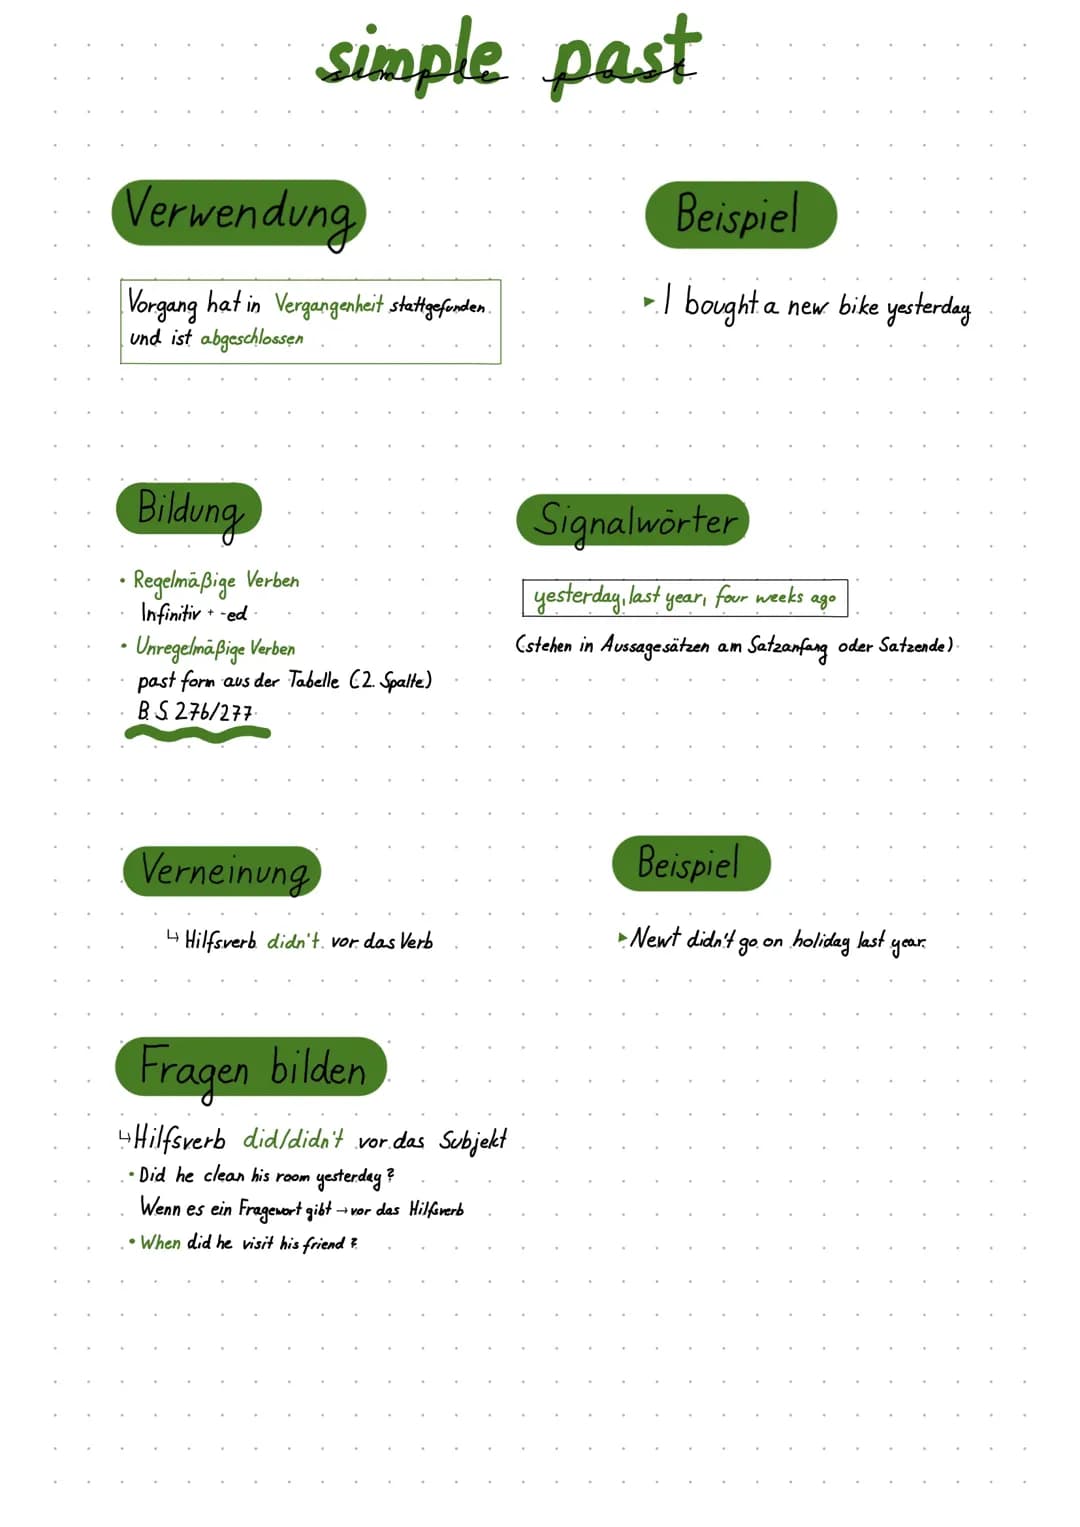 simple past
Verwendung
Vorgang hat in Vergangenheit stattgefunden
und ist abgeschlossen
Beispiel
▸ I bought a new bike yesterday
Bildung
• Regelmäßige Verben
Infinitiv + -ed
• Unregelmäßige Verben
past form aus der Tabelle (2. Spalte)
B. S. 276/277
Signalwörter
yesterday, last year, four weeks ago
(stehen in Aussagesätzen am Satzanfang oder Satzende)
Verneinung
↳ Hilfsverb didn't vor das Verb
Beispiel
▸ Newt didn't go on holiday last year.
Fragen bilden
↳ Hilfsverb did/didn't vor das Subjekt
• Did he clean his room yesterday?
Wenn es ein Fragewort gibt → vor das Hilfsverb
• When did he visit his friend?